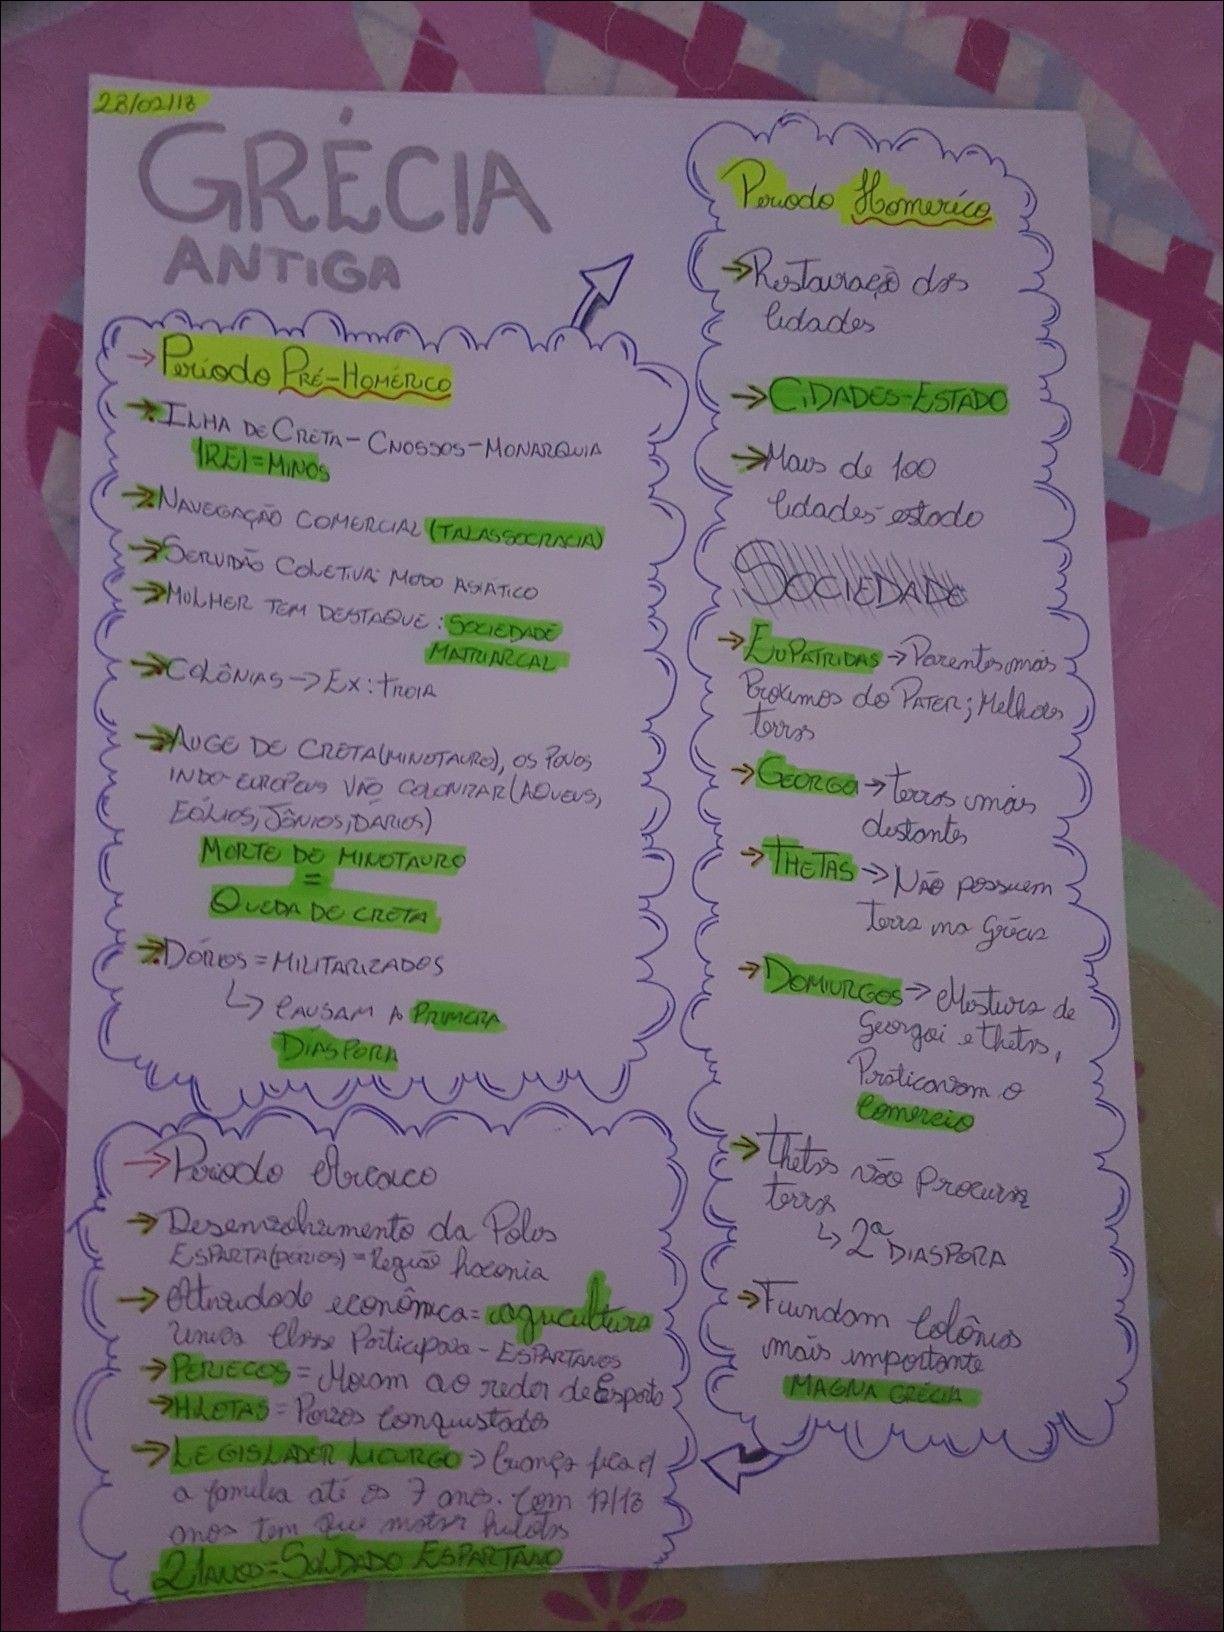 28/02/18
GRÉCIA
ANTIGA
→ Período Pré-Homérico
→ Ilha de Creta - Cnossos - Monarquia
|REI = Minos
→ Navegação comercial (talassocracia)
→ Servidão coletiva: modo asiático
→ Mulher tem destaque: sociedade
matriarcal
→ Colônias → Ex: Troia
→ Auge de Creta (minotauro), os povos
indo-europeus vão colonizar (aqueus,
eólios, jônios, dários)
Morte de minotauro
=
Queda de Creta
→ Dórios = militarizados
↳ Causam a primera
Diáspora
Periodo Homerico
→ Restauração das
Cidades
→ Cidades-Estado
→ Mais de 100
Cidades-estado
Sociedade
→ Eupatridas → Parentes mais
Proximos do Pater; Melhores
terras
→ Georgo → terras mais
distantes
→ Thetas → Não possuem
terra na Grécia
→ Domiurgos → Mistura de
Georgoi e thetas,
Praticavam o
Comercio
→ thetas vão procurar
terra
↳ 2ª Diaspora
→ Fundam Colônias
mais importante
Magna Grécia
→ Periodo Arcaico
→ Desenvolvimento da Polis
Esparta (dórios) = Região Laconia
→ Atividade econômica = agricultura
Única Classe Participava - Espartanos
→ Periecos = Moram ao redor de Esparta
→ Hilotas = Povos Conquistados
→ Legislador Licurgo → Criança fica c/
a familia até os 7 anos. Com 17/18
anos tem que matar hilotas
21 anos = Soldado Espartano